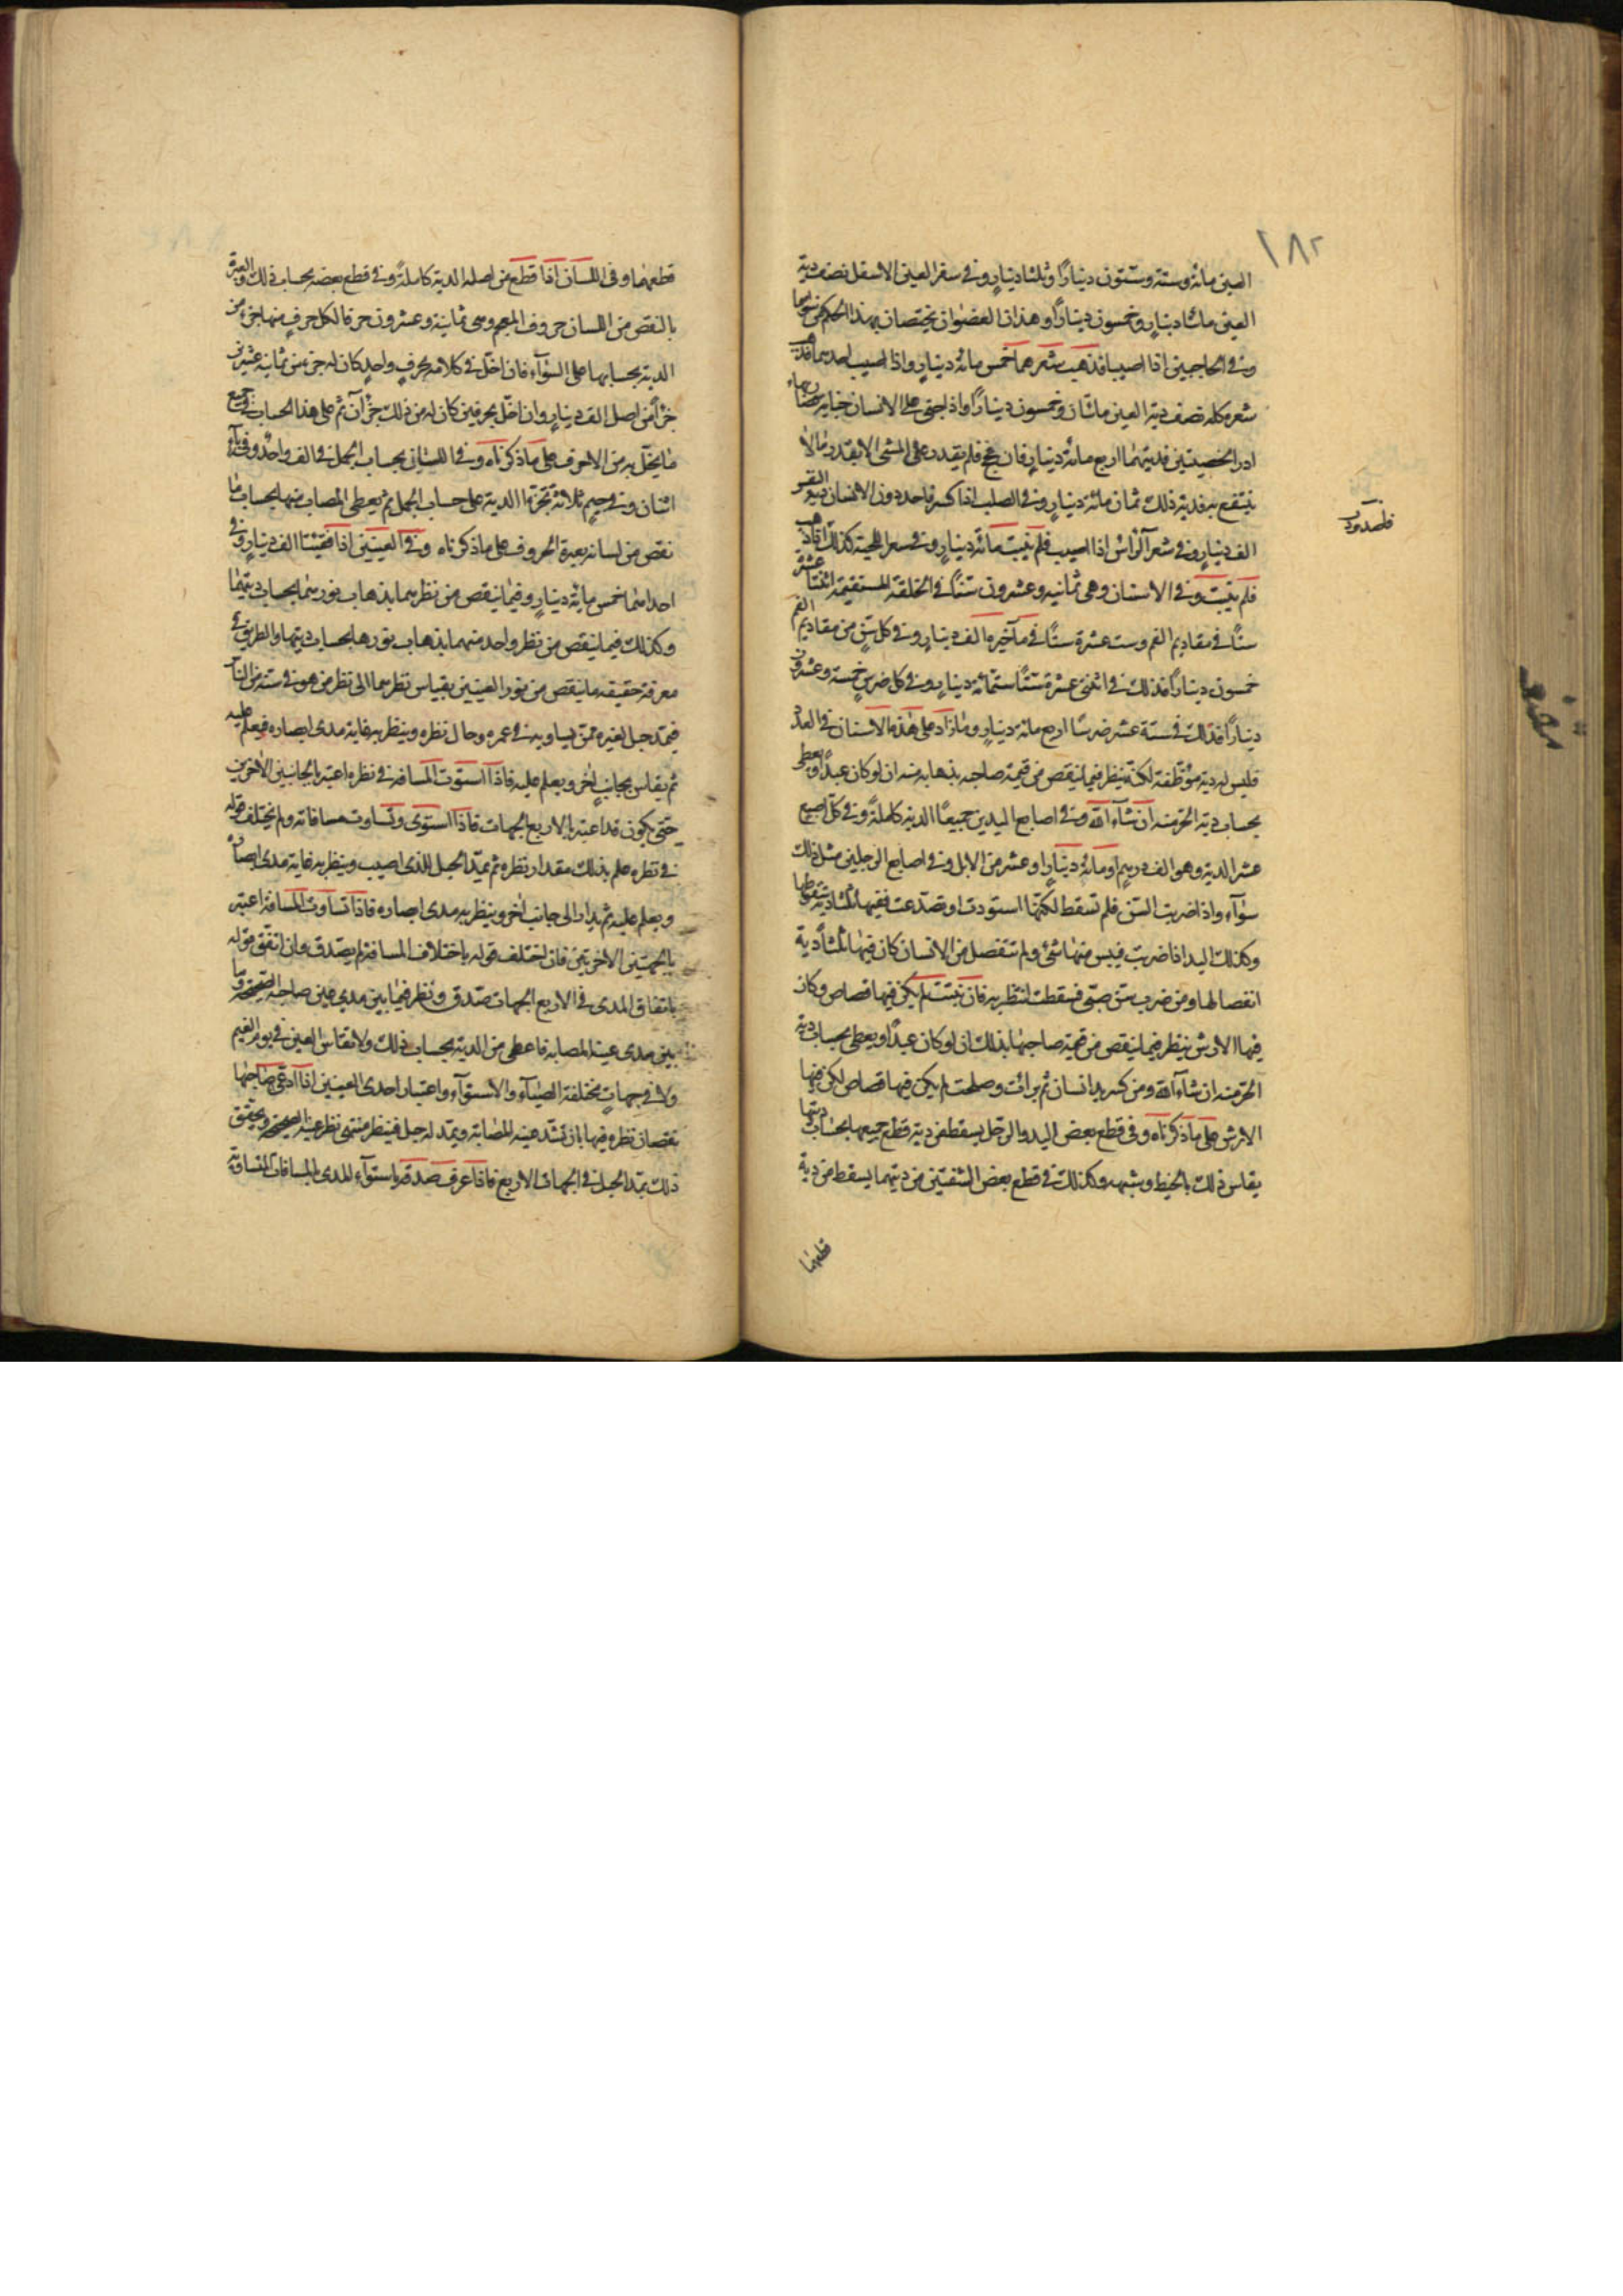 ١٨٢
العين مائة وستة وستون دينارًا وثلثا دينارٍ وفي شفر العين الاسفل نصف دية
العين مائتا دينارٍ وخمسون دينارًا وهذان العضوان يختصان بهذا الحكم
وفي الحاجبين اذا اصيبا فذهب شعرهما خمس مائة دينارٍ واذا اصيب احدهما فذهب
شعره كله نصف دية العين مائتان وخمسون دينارًا واذا جنى على الانسان جناية
ادر الخصيتين فديتهما اربع مائة دينارٍ فان فحج فلم يقدر على المشي الا بقدر ما لا
ينتفع به فدية ذلك ثمان مائة دينارٍ وفي الصلب اذا كسر فاحدودب الانسان
الف دينارٍ وفي شعر الرأس اذا اصيب فلم ينبت مائة دينارٍ وفي شعر اللحية كذلك اذا ذهب
فلم ينبت وفي الاسنان وهي ثمانية وعشرون سنًا في الخلقة المستقيمة اثنتا عشر
سنًا في مقاديم الفم وست عشرة سنًا في مآخيره الف دينارٍ وفي كل سن من مقاديم الفم
خمسون دينارًا فذلك في اثنتي عشرة سنًا ستمائة دينارٍ وفي كل ضرسٍ خمسة وعشرون
دينارًا فذلك في ستة عشر ضرسًا اربع مائة دينارٍ وما زاد على هذه الاسنان في العدد
فليس له دية موظفة لكنه ينظر فيما ينقص من قيمة صاحبه بذهابه منه ان لو كان عبدًا ويعطى
بحساب دية الحر منه ان شاء الله وفي اصابع اليدين جميعًا الدية كاملةً وفي كل اصبع
عشر الدية وهو الف درهمٍ او مائة دينارٍ او عشر من الابل وفي اصابع الرجلين مثل ذلك
سوآء واذا ضربت السن فلم تسقط لكنها اسودت او تصدعت ففيها ثلثا دية سقوطها
وكذلك اليد اذا ضربت فيبس منها شئ ولم تنفصل من الانسان كان فيها ثلثا دية
انفصالها ومن ضرب سن صبي فسقطت انتظر به فان نبتت لم يكن فيها قصاص وكان
فيها الارش ينظر فيما ينقص من قيمة صاحبها بذلك ان لو كان عبدًا ويعطى بحساب دية
الحر منه ان شاء الله ومن كسر يد انسان ثم برأت وصلحت لم يكن فيها قصاص لكن فيها
الارش على ما ذكرناه وفي قطع بعض اليد والرجل يسقط من دية قطع جميعها بحساب ديتها
يقاس ذلك بالخيط وشبهه وكذلك في قطع بعض الشفتين من ديتهما يسقط من دية
قطعهما
قطعهما وفي اللسان اذا قطع من اصله الدية كاملةً وفي قطع بعضه بحساب ذلك والعبرة
بالنقص من اللسان حروف المعجم وهي ثمانية وعشرون حرفا لكل حرفٍ منها جزء من
الدية بحسابها على السوآء فان اخل في كلامه بحرفٍ واحدٍ كان له جزء من ثمانية عشرين
جزأً من اصل الف دينارٍ وان اخل بحرفين كان له من ذلك جزآن ثم على هذا الحساب في جميع
ما يخل به من الحروف على ما ذكرناه وفي اللسان بحساب الجمل في الف واحد وفي بآء
اثنان وفي جيمٍ ثلاثة تجزئ الدية على حساب الجمل ثم يعطى المصاب منها بحساب ما
نقص من لسانه بعبرة الحروف على ما ذكرناه وفي العينين اذا فقئتا الف دينارٍ وفي
احداهما خمس مائة دينارٍ وفيما ينقص من نظرهما بذهاب نورهما بحساب ديتهما
وكذلك فيما ينقص من نظر واحد منهما بذهاب نورها بحساب ديتها والطريق في
معرفة حقيقة ما ينقص من نور العينين يقاس نظرهما الى نظر من هو في سنه من الناس
فيمد حبل لغيره ممن يساويه في عمره وحال نظره وينظر به غاية مدى ابصاره فيعلم عليه
ثم يقاس بجانبٍ اخر ويعلم عليه فاذا استوت المسافة في نظره اعتبر بالجانبين الاخرين
حتى يكون قد اعتبر بالاربع الجهات فاذا استوى وتساوت مسافاته ولم يختلف قوله
في نظره علم بذلك مقدار نظره ثم يمد الحبل للذي اصيب وينظر به غاية مدى ابصاره
ويعلم عليه ثم يدار الى جانب اخر وينظر به مدى ابصاره فاذا تساوت المسافة اعتبر
بالجهتين الاخريتين فان اختلف قوله باختلاف المسافة لم يصدق وان اتفق قوله
باتفاق المدى في الاربع الجهات صدق ونظر فيما بين مدي عين صاحبه الصحيحة وما
بين مدى عينه المصابة فاعطي من الدية بحساب ذلك ولا تقاس العين في يوم الغيم
ولا في جهاتٍ مختلفة الضيآء والاستوآء واعتبار احدى العينين اذا ادعى صاحبها
نقصان نظره فيها بان تشد عينه المصابة ويمد له حبل فينظر منتهى نظر عينه الصحيحة ويحقق
ذلك بمد الحبل في الجهات الاربع فاذا عرف صدقه باستوآء المدى بالمسافات المتساوية